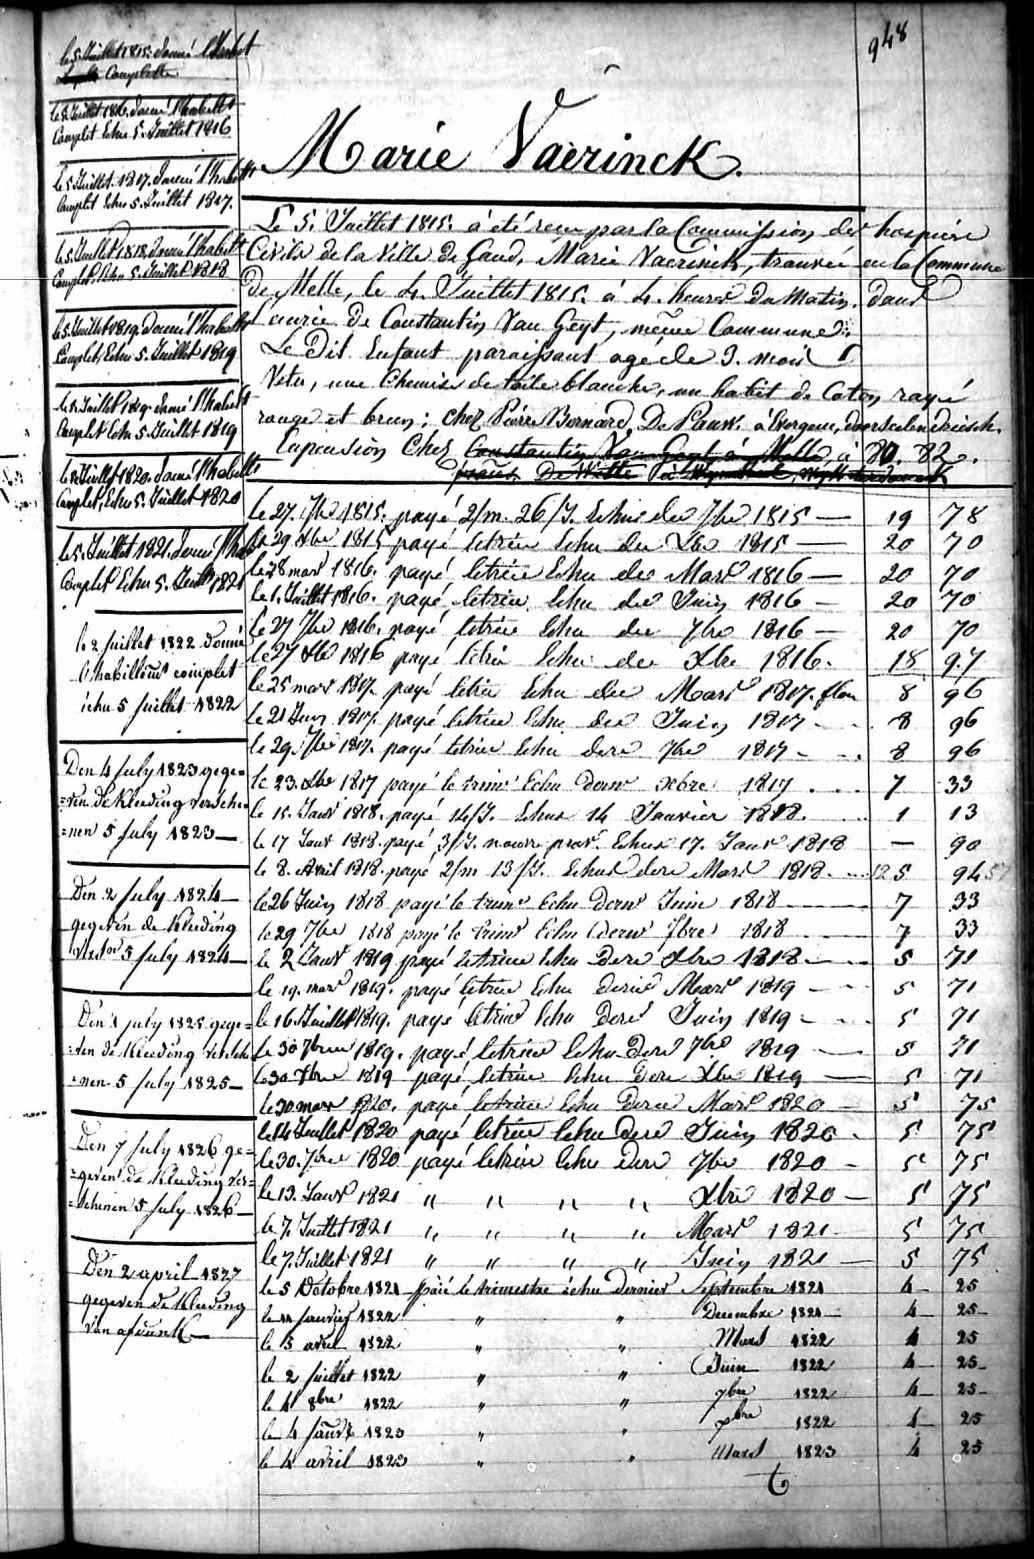 948
le 5 Juillet 1815. donné l'habit
Complette
le 5 Juillet 1816. donné l'habillt
Complet Echu 5. Juillet 1816
le 5 Juillet. 1817. donné l'habillt
Complet Echu 5. Juillet 1817.
le 5 Juillet 1818. donné l'habillt
Complet Echu 5. Juillet 1818
le 5. Juillet 1819. donné l'habillt
Complet, Echu 5. Juillet 1819
le 5. Juillet 1819. donné l'habillt
Complet Echu 5. Juillet 1819
Juillet 1820. donné l'habillt
Complet, Echu 5. Juillet 1820
le 5. Juillet 1821. donné
Complet Echu 5. 1821
le 2 juillet 1822 donné
l'habillemt complet
échu 5 juillet 1822
Den 4 july 1823 gege=
=ven de kleeding versche=
=nen 5 july 1823
Den 2 july 1824
gegeven de kleeding
5 july 1824
july 1825 gege=
=ven de kleeding versche
=nen 5 july 1825
Den 7 july 1826 ge=
=geven de kleeding ver=
=schenen 5 july 1826
Den 2 april 1827
gegeven de kleeding
van
Marie Vaerinck.
Le 5. Juillet 1815. a été reçu par la Commission des hospices
Civils de la Ville de Gand, Marie Vaerinck, trouvée en la Commune
de Melle, le 4. Juillet 1815. à 4. heures du Matin. dans
l'ecurie de Constantin Van Geyt, même Commune.
Le Dit Enfant paraissant age de 3. mois
Vetu, une Chemise de toile blanche, un habit de Coton rayé
rouge et brun: chez Pierre Bernard De Pauw. à Everghem,
en pension Chez Constantin Van Geyt, à Melle, à 82.
De Witte
le 27. 7bre 1815. payé 2/m. 26/J. Echus der 7bre 1815 — 19 78
le 29 Xbre 1815 payé letrim Echu der Xbre 1815 — 20 70
le 28 mars 1816. payé letrim Echu der Mars 1816 — 20 70
le 1. Juillet 1816. payé letrim Echu der Juin 1816 — 20 70
le 27 7bre 1816. payé letrim Echu der 7bre 1816 — 20 70
le 27 Xbre 1816 payé letrim Echu der Xbre 1816. 18 97
le 25 mars 1817. payé letrim Echu der Mars 1817. 8 96
le 21 Juin 1817. payé letrim Echu der Juin 1817 8 96
le 29. 7bre 1817. payé letrim Echu der 7bre 1817 8 96
le 23. Xbre 1817 payé le trim Echu dern Xbre 1817 . . . 7 33
le 15. Janv 1818. payé 14/J. Echus 14 Janvier 1818. 1 13
le 17 Janv 1818. payé 3/J. Echus 17. Janv 1818 — 90
le 8. Avril 1818. payé 2/m 13/J. Echus der Mars 1818. 5 94
le 26 Juin 1818 payé le trim Echu dern Juin 1818 7 33
le 29 7bre 1818 payé le trim Echu dern 7bre 1818 7 33
le 2 Janv 1819 payé letrim Echu der Xbre 1818 5 71
le 19. mars 1819. payé letrim Echu der Mars 1819 5 71
le 16 Juillet 1819. payé letrim Echu der Juin 1819 5 71
le 30 7bre 1819. payé letrim Echu der 7bre 1819 5 71
1819 payé letrim Echu der Xbre 1819 — 5 71
le 30 mars 1820. payé letrim Echu der Mars 1820 5 75
le 14 Juillet 1820 payé letrim Echu der Juin 1820 5 75
le 30. 7bre 1820 payé letrim Echu der 7bre 1820 5 75
le 13. Janv 1821 " " " " Xbre 1820 — 5 75
le 7. Juillet 1821 " " " " Mars 1821. 5 75
le 7. Juillet 1821 " " " " Juin 1821 — 5 75
le 5 Octobre 1821 païé le trimestre échu dernier Septembre 1821 4 25
le 11 janvier 1822 " " Decembre 1821 4 25
le 3 avril 1822 " " Mars 1822 4 25
le 2 juillet 1822 " " Juin 1822 4 25
le 4 8bre 1822 " " 7bre 1822 4 25
le 4 janvr 1823 " " Xbre 1822 4 25
le 4 avril 1823 " " Mars 1823 4 25